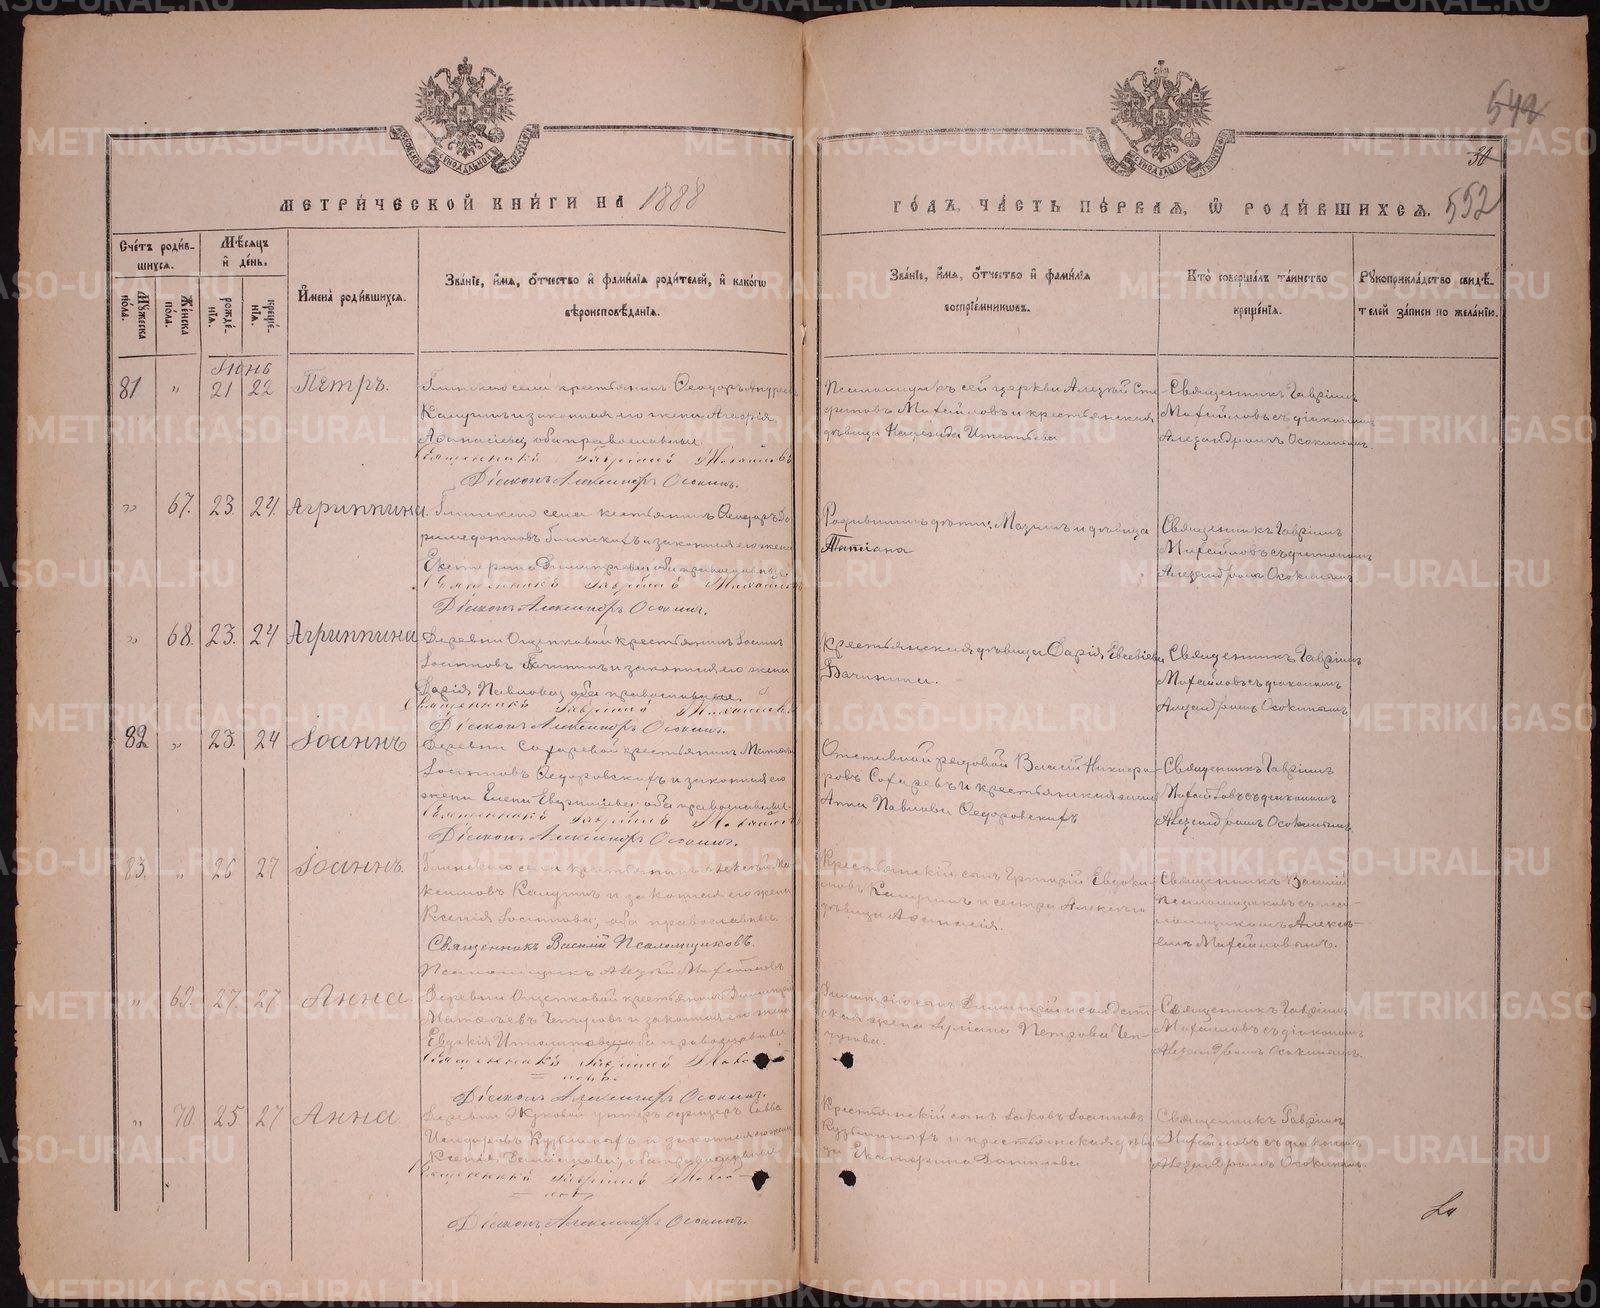 542
30
МЕТРИ́ЧЕСКОЙ КНИ́ГИ НА 1888
ГО́ДЪ, ЧА́СТЬ ПЕ́РВАЯ, Ѡ РОДИ́ВШИХСЯ. 552
Сче́тъ роди́в-
шихся.
Мѣ́сяцъ
и҆ де́нь.
Му́жеска
по́ла.
Же́нска
по́ла.
рожде́-
нїя.
креще́-
нїя.
И҆мена̀ роди́вшихся.
Зва́нїе, и҆́мя, о҆́тчество и҆ фами́лїя роди́телей, и҆ како́гѡ
вѣроисповѣ́данїя.
Зва́нїе, и҆́мя, о҆́тчество и҆ фами́лїя
воспрїе́мниковъ.
Кто̀ соверша́лъ та́инство
креще́нїя.
Рꙋкоприкла́дство свидѣ́-
телей за́писи по жела́нїю.
Іюнь
81 " 21 22 Петръ.
Глинскаго села крестьянинъ Ѳеодоръ Андреевъ
Калугинъ и законная его жена Агафія
Аѳанасіева, оба православные.
Священникъ Гавріилъ Михайловъ
Діаконъ Александръ Осокинъ.
Псаломщикъ сей церкви Алексѣй
Михайловъ и крестьянская
дѣвица Надежда
Священникъ Гавріилъ
Михайловъ съ діакономъ
Александромъ Осокинымъ.
" 67. 23. 24. Агриппина.
Глинскаго села крестьянинъ Ѳеодоръ
и законная его жена
Екатерина Димитріева, оба православные.
Священникъ Гавріилъ Михайловъ
Діаконъ Александръ Осокинъ.
Родившихъ дѣти: и дѣвица
Татіана
Священникъ Гавріилъ
Михайловъ съ діакономъ
Александромъ Осокинымъ.
" 68. 23. 24 Агриппина
Деревни Ощепковой крестьянинъ Іоаннъ
Іосифовъ Бачининъ и законная его жена
Дарія Павлова, оба православные.
Священникъ Гавріилъ Михайловъ
Діаконъ Александръ Осокинъ.
Крестьянская дѣвица Дарія Евсевіева
Бачинина.
Священникъ Гавріилъ
Михайловъ съ діакономъ
Александромъ Осокинымъ.
82 " 23. 24 Іоаннъ
Деревни Сохаревой крестьянинъ
Іосифовъ Ѳедоровскихъ и законная его
жена Елена оба православные.
Священникъ Гавріилъ Михайловъ
Діаконъ Александръ Осокинъ.
Отставной рядовой Василій Никифо-
ровъ Сохаревъ и крестьянская жена
Анна Павлова Ѳедоровскихъ
Священникъ Гавріилъ
Михайловъ съ діакономъ
Александромъ Осокинымъ.
83. " 26 27 Іоаннъ.
Глинскаго села крестьянинъ Алексѣй Ма-
ксимовъ Калугинъ и законная его жена
Ксенія Іосифова, оба православные.
Священникъ Василій Псаломщиковъ.
Псаломщикъ Алексѣй Михайловъ
Крестьянскій сынъ Григорій Евдоки-
мовъ Калугинъ и сестра Алексѣя
дѣвица Аѳанасія.
Священникъ Василій
Псаломщиковъ съ пса-
ломщикомъ Алексѣ-
емъ Михайловымъ.
" 69. 27. 27 Анна.
Деревни Ощепковой крестьянинъ Димитрій
Матѳеевъ Чепчуговъ и законная его жена
Евдокія Ипполитова, оба православные
Священникъ Гавріилъ Михай-
ловъ.
Діаконъ Александръ Осокинъ.
сынъ Димитрій и солдат-
ская жена Іуліана Петрова Чеп-
чугова.
Священникъ Гавріилъ
Михайловъ съ діакономъ
Александромъ Осокинымъ.
" 70. 25 27 Анна.
Деревни Жуковой унтеръ-офицеръ Савва
Исидоровъ Кузьминыхъ и законная его жена
Ксенія оба православные
Священникъ Гавріилъ Михай-
ловъ
Діаконъ Александръ Осокинъ.
Крестьянскій сынъ Іаковъ Іосифовъ
Кузьминыхъ и крестьянская дѣви-
ца Екатерина Данилова
Священникъ Гавріилъ
Михайловъ съ діакономъ
Александромъ Осокинымъ.
METRIKI.GASO-URAL.RU